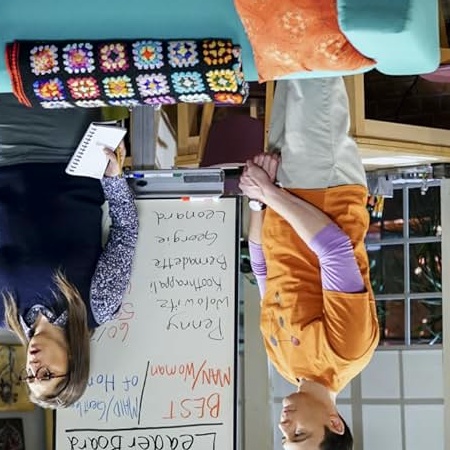 LeaderBoard
BEST
MAN/Woman
MAID/Gentle
of Hon
Penny
Wolowitz
Koothrappali
Bernadette
Georgie
Leonard
60